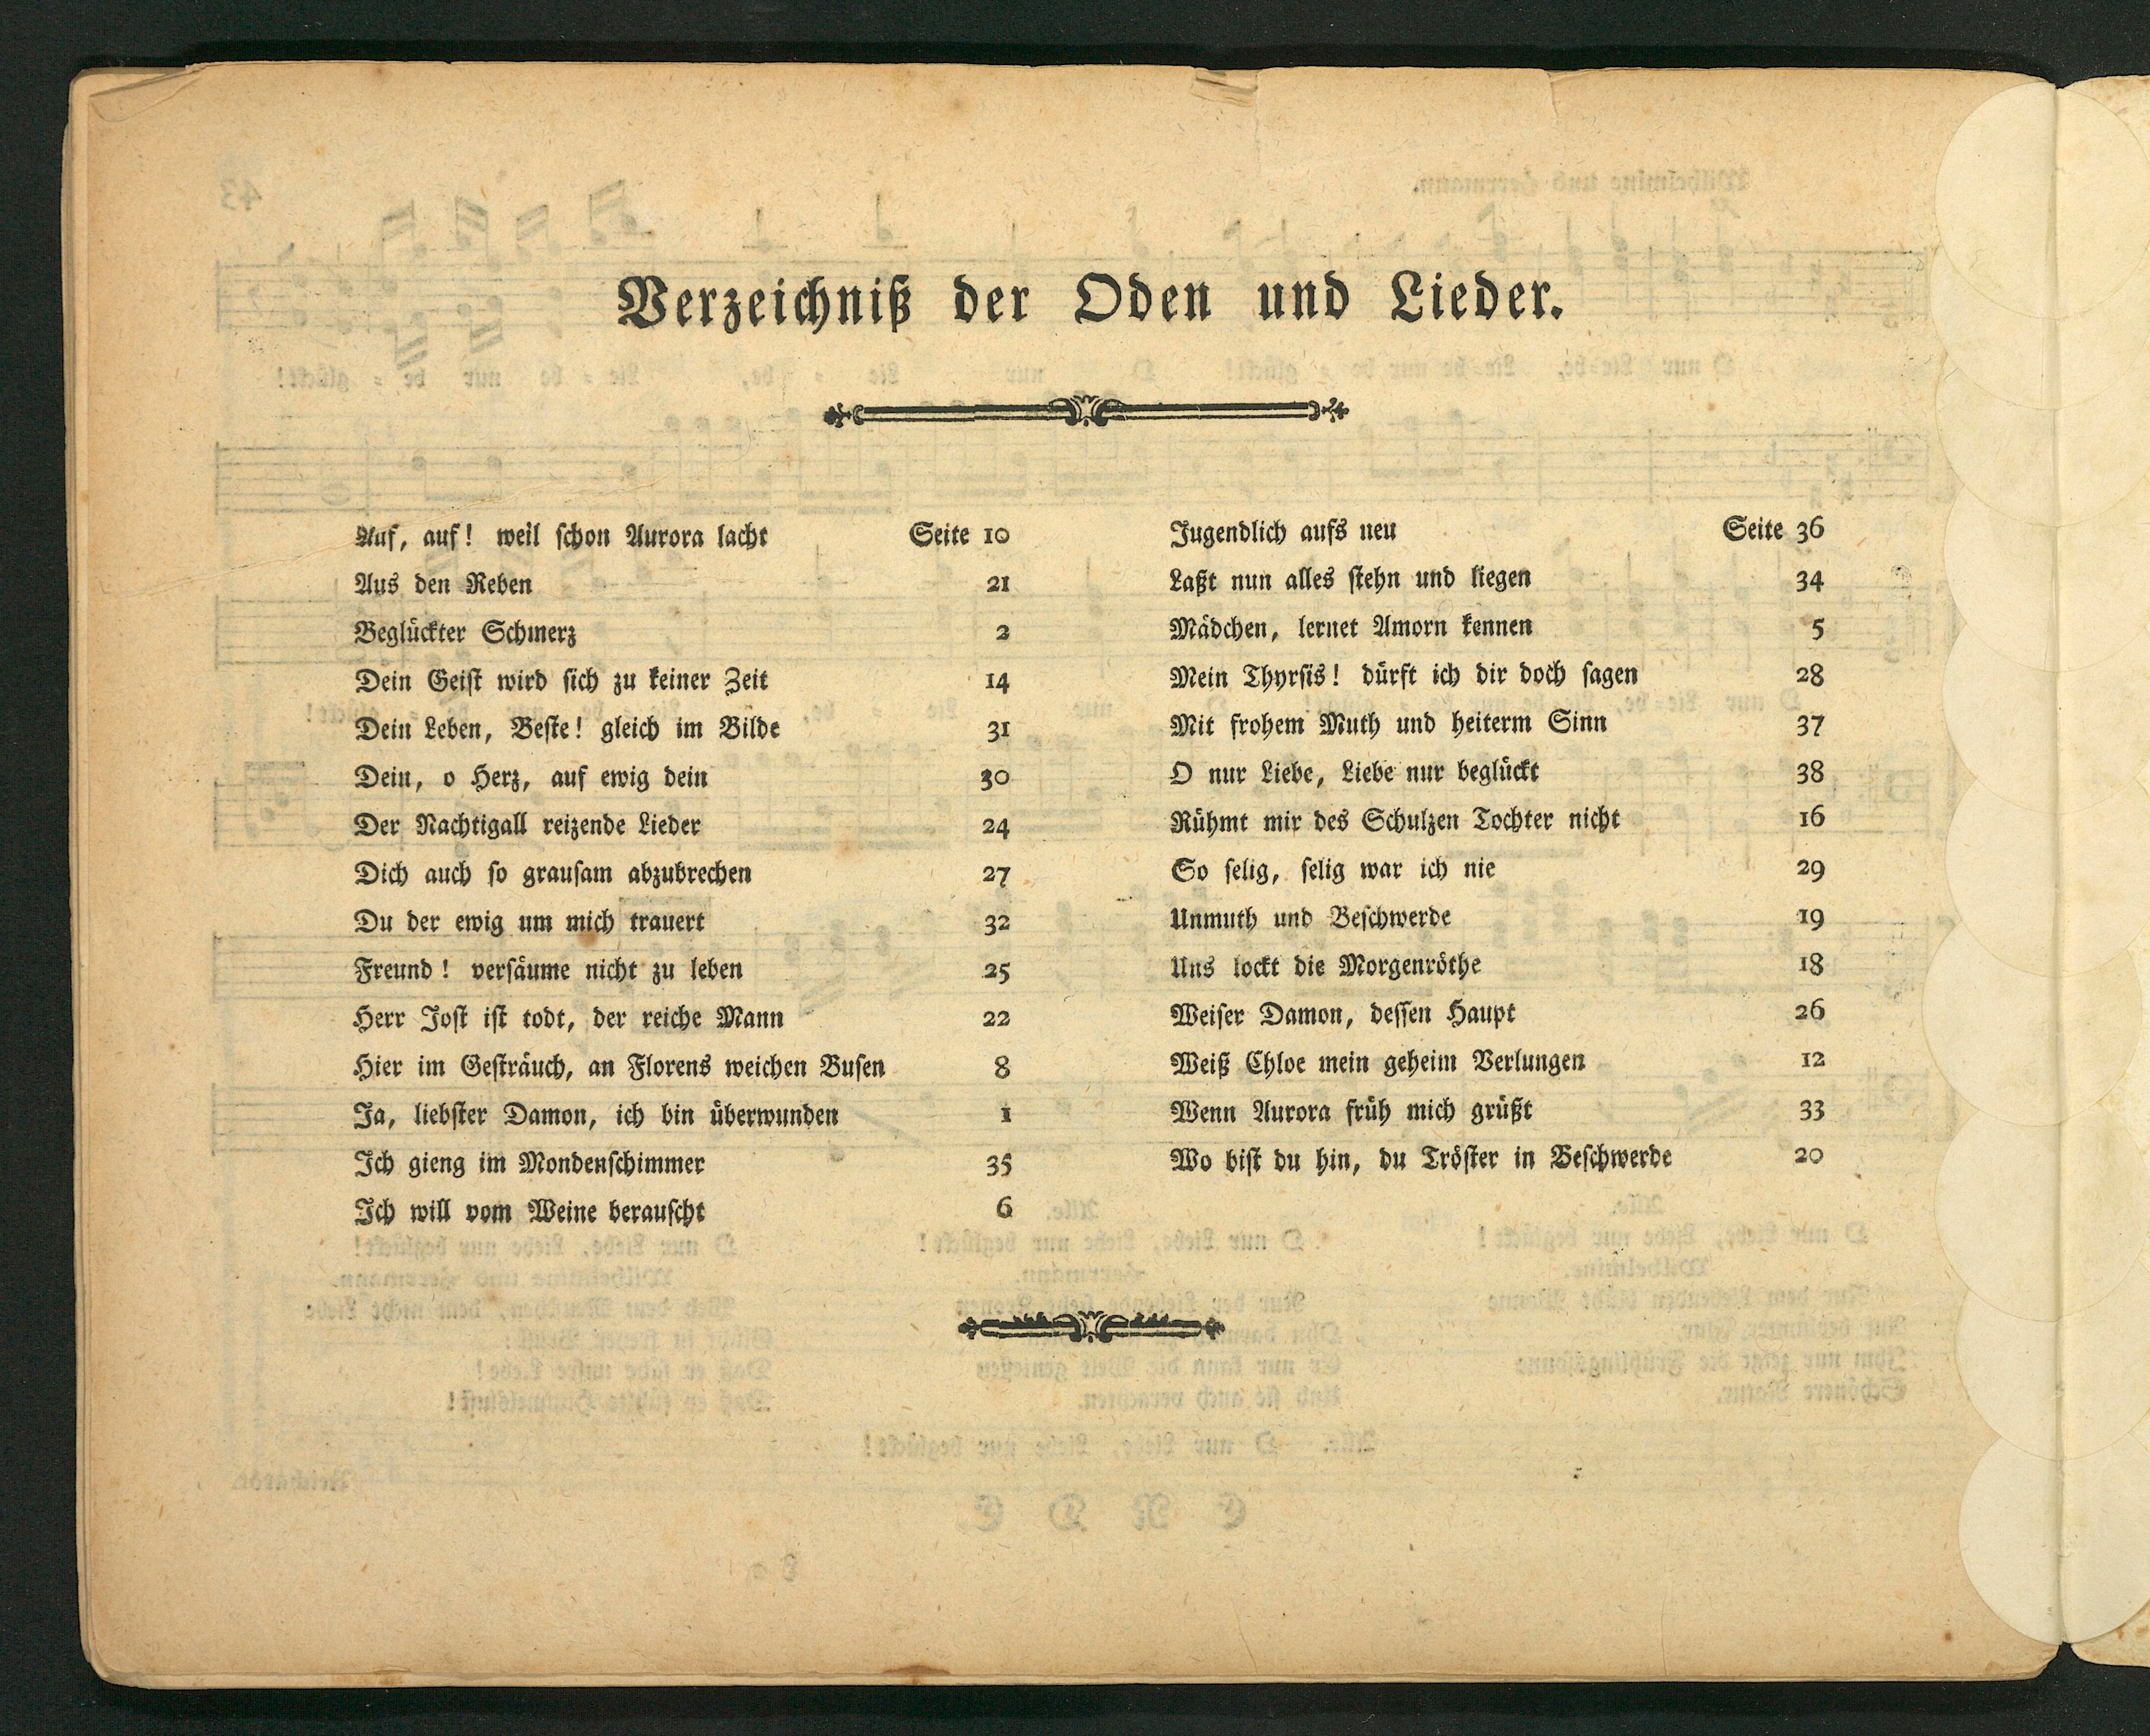 Verzeichniß der Oden und Lieder.
Auf, auf! weil schon Aurora lacht Seite 10
Aus den Reben 21
Beglückter Schmerz 2
Dein Geist wird sich zu keiner Zeit 14
Dein Leben, Beste! gleich im Bilde 31
Dein, o Herz, auf ewig dein 30
Der Nachtigall reizende Lieder 24
Dich auch so grausam abzubrechen 27
Du der ewig um mich trauert 32
Freund! versäume nicht zu leben 25
Herr Jost ist todt, der reiche Mann 22
Hier im Gesträuch, an Florens weichen Busen 8
Ja, liebster Damon, ich bin überwunden 1
Ich gieng im Mondenschimmer 35
Ich will vom Weine berauscht 6
Jugendlich aufs neu Seite 36
Laßt nun alles stehn und liegen 34
Mädchen, lernet Amorn kennen 5
Mein Thyrsis! dürft ich dir doch sagen 28
Mit frohem Muth und heiterm Sinn 37
O nur Liebe, Liebe nur beglückt 38
Rühmt mir des Schulzen Tochter nicht 16
So selig, selig war ich nie 29
Unmuth und Beschwerde 19
Uns lockt die Morgenröthe 18
Weiser Damon, dessen Haupt 26
Weiß Chloe mein geheim Verlungen 12
Wenn Aurora früh mich grüßt 33
Wo bist du hin, du Tröster in Beschwerde 20